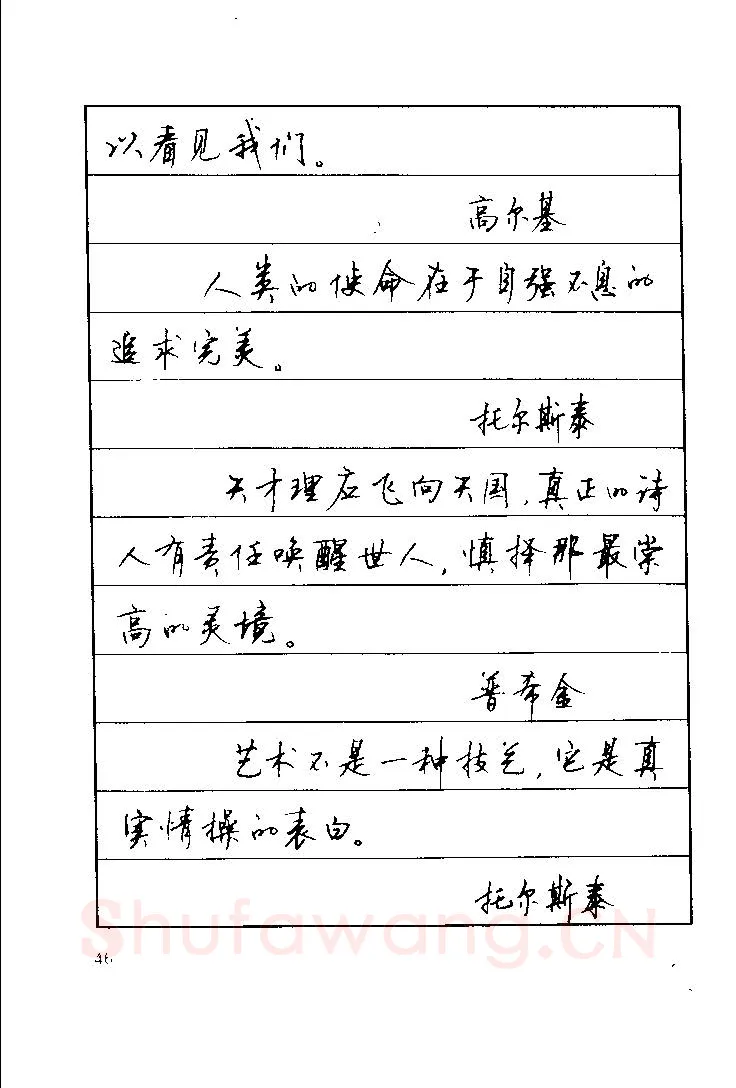 以看见我们。
高尔基
人类的使命在于自强不息的
追求完美。
托尔斯泰
天才理应飞向天国，真正的诗
人有责任唤醒世人，慎择那最崇
高的灵境。
普希金
艺术不是一种技艺，它是真
实情操的表白。
托尔斯泰
Shufawang.CN
46